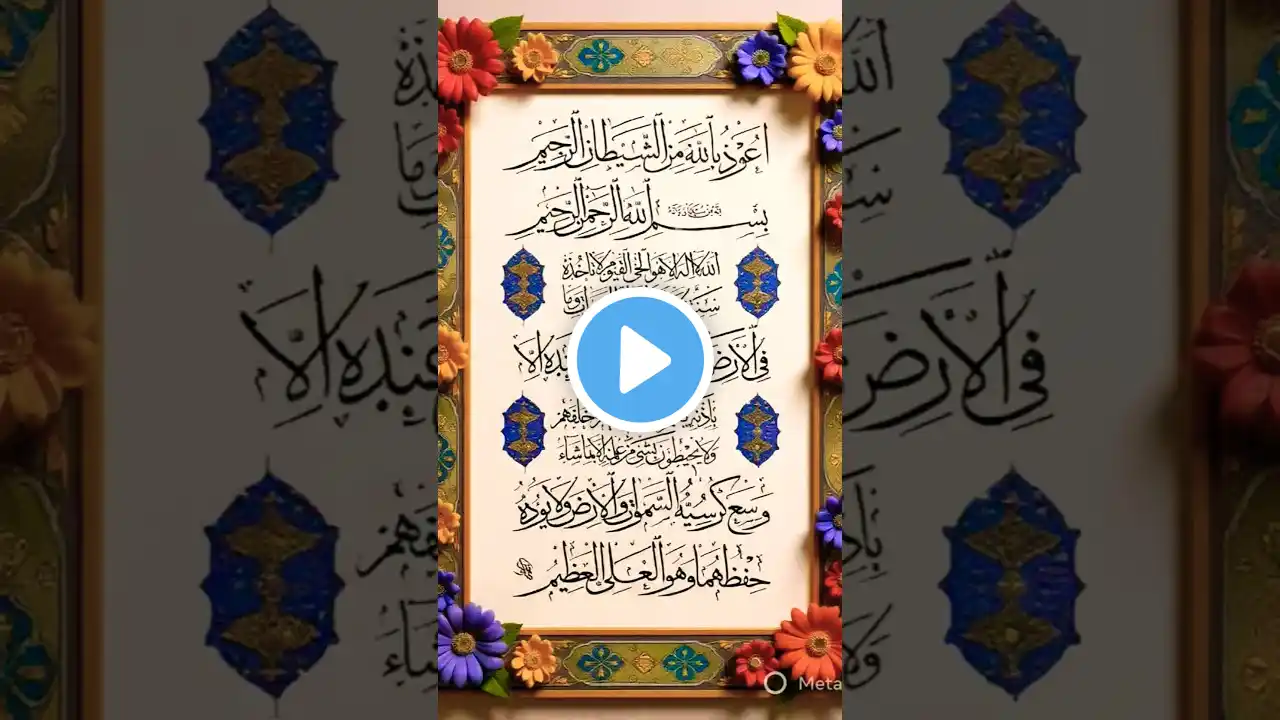 اعوذ بالله من الشيطان الرجيم
بسم الله الرحمن الرحيم
الله لا اله الا هو الحي القيوم لا تاخذه
سنة وما
في الارض عنده الا
باذنه خلفهم
ولا يحيطون بشئ من علمه الا بما شاء
وسع كرسيه السموات والارض ولا يوده
حفظهما وهو العلى العظيم
Meta